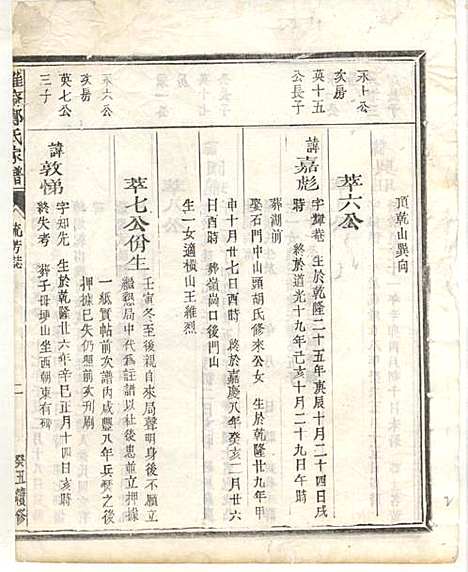 頂乾山巽向
永上公
亥房
英十五
公長子
萃六公
諱嘉彪
字輝菴 生於乾隆二十五年庚辰十月二十四日戌
時 終於道光十九年己亥十月二十九日午時
葬湖前
娶石門中山頭胡氏修來公女 生於乾隆廿九年甲
申十月廿七日酉時 終於嘉慶八年癸亥二月廿六
日酉時 葬嶺崗口後門山
生一女適橫山王維烈
永六公
亥房
英七公
三子
萃七公份生
壬寅冬至後親自來局聲明身後不願立
繼懇局中代為註譜以杜後患並立押據
一紙實帖前次譜內咸豐八年兵燹之後
押據已失仍照前次刊刷
諱敦悌
字知先 生於乾隆廿六年辛巳正月十四日亥時
終失考 葬子母垻山坐西朝東有碑
鄭氏家譜
流芳誌
二
癸丑續修